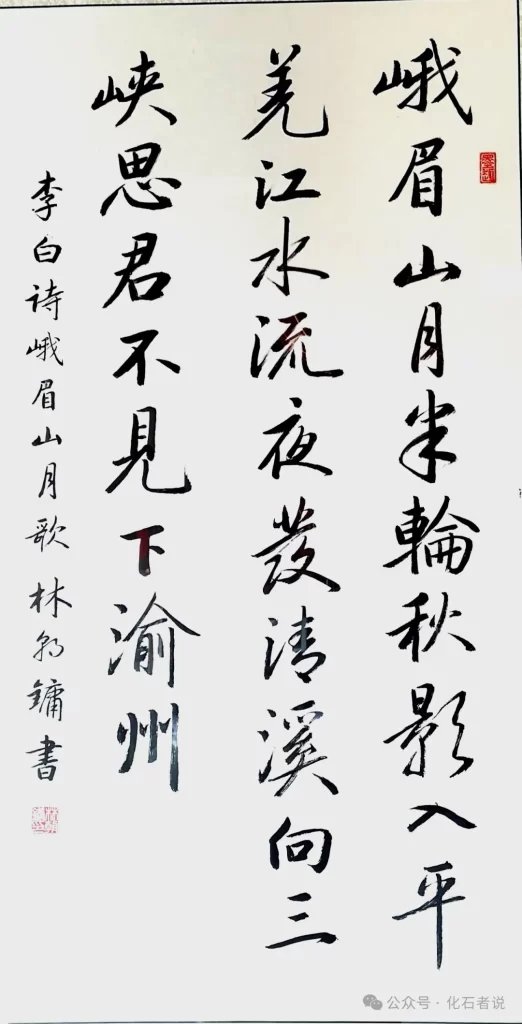 峨眉山月半輪秋影入平
羌江水流夜發清溪向三
峡思君不見下渝州
李白诗峨眉山月歌 林 鏞書
公众号·化石者说